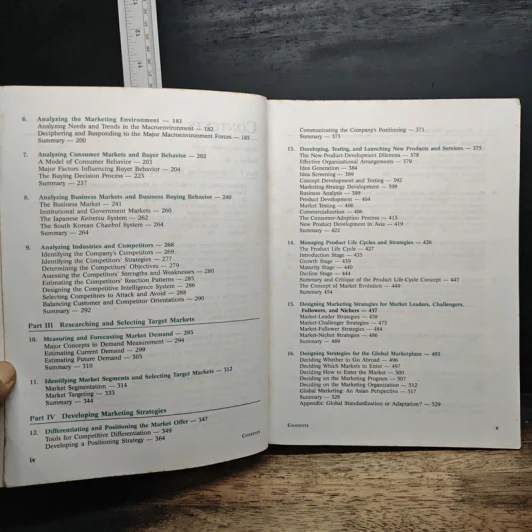 6. Analyzing the Marketing Environment — 181
Analyzing Needs and Trends in the Macroenvironment — 182
Deciphering and Responding to the Major Macroenvironment Forces — 185
Summary — 200
7. Analyzing Consumer Markets and Buyer Behavior — 202
A Model of Consumer Behavior — 203
Major Factors Influencing Buyer Behavior — 204
The Buying Decision Process — 223
Summary — 237
8. Analyzing Business Markets and Business Buying Behavior — 240
The Business Market — 241
Institutional and Government Markets — 260
The Japanese Keiretsu System — 262
The South Korean Chaebol System — 264
Summary — 264
9. Analyzing Industries and Competitors — 268
Identifying the Company's Competitors — 269
Identifying the Competitors' Strategies — 277
Determining the Competitors' Objectives — 279
Assessing the Competitors' Strengths and Weaknesses — 280
Estimating the Competitors' Reaction Patterns — 285
Designing the Competitive Intelligence System — 286
Selecting Competitors to Attack and Avoid — 288
Balancing Customer and Competitor Orientations — 290
Summary — 292
Part III Researching and Selecting Target Markets
10. Measuring and Forecasting Market Demand — 293
Major Concepts in Demand Measurement — 294
Estimating Current Demand — 299
Estimating Future Demand — 305
Summary — 310
11. Identifying Market Segments and Selecting Target Markets — 312
Market Segmentation — 314
Market Targeting — 333
Summary — 344
Part IV Developing Marketing Strategies
12. Differentiating and Positioning the Market Offer — 347
Tools for Competitive Differentiation — 349
Developing a Positioning Strategy — 364
iv
Contents
Communicating the Company's Positioning — 371
Summary — 373
13. Developing, Testing, and Launching New Products and Services — 375
The New-Product-Development Dilemma — 378
Effective Organizational Arrangements — 379
Idea Generation — 384
Idea Screening — 389
Concept Development and Testing — 392
Marketing-Strategy Development — 398
Business Analysis — 399
Product Development — 404
Market Testing — 406
Commercialization — 408
The Consumer-Adoption Process — 413
New Product Development in Asia — 419
Summary — 422
14. Managing Product Life Cycles and Strategies — 426
The Product Life Cycle — 427
Introduction Stage — 435
Growth Stage — 439
Maturity Stage — 440
Decline Stage — 444
Summary and Critique of the Product Life-Cycle Concept — 447
The Concept of Market Evolution — 449
Summary 454
15. Designing Marketing Strategies for Market Leaders, Challengers,
Followers, and Nichers — 457
Market-Leader Strategies — 458
Market-Challenger Strategies — 473
Market-Follower Strategies — 484
Market-Nicher Strategies — 486
Summary — 489
16. Designing Strategies for the Global Marketplace — 493
Deciding Whether to Go Abroad — 496
Deciding Which Markets to Enter — 497
Deciding How to Enter the Market — 500
Deciding on the Marketing Program — 507
Deciding on the Marketing Organization — 512
Global Marketing: An Asian Perspective — 517
Summary — 528
Appendix: Global Standardization or Adaptation? — 529
Contents
v